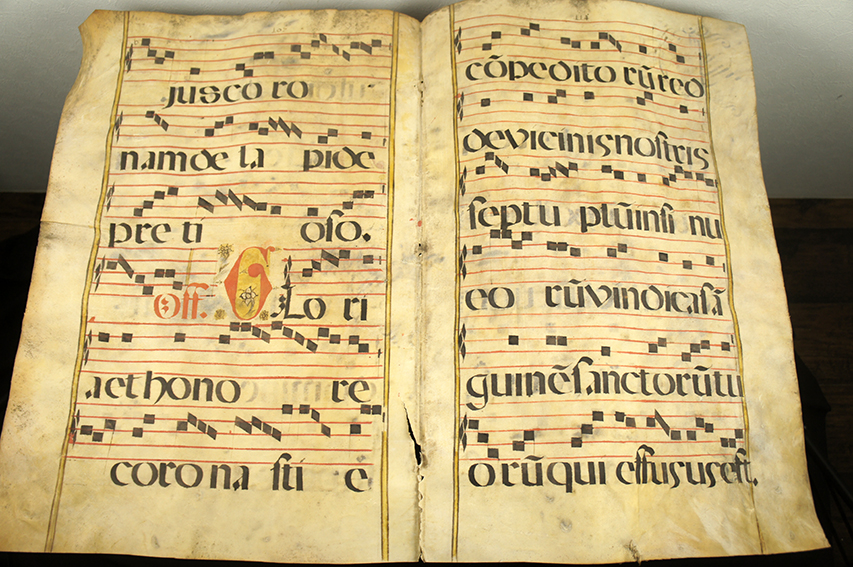 jus co ro
nam de la pide
pre ti oso.
Off. Glo ri
a et hono re
coro na sti e
cõpedito rũ reo
de vicinis nostris
septu plũ insi nu
eo rũ vindica sã
guinẽ sancto rũ tu
o rũ qui effusus est.